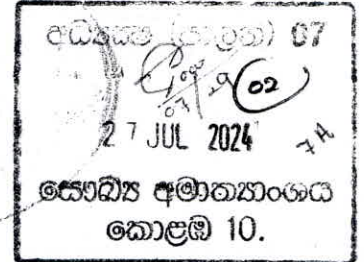 අධ්‍යක්ෂ (පාලන) 07
02
27 JUL 2024
සෞඛ්‍ය අමාත්‍යාංශය
කොළඹ 10.